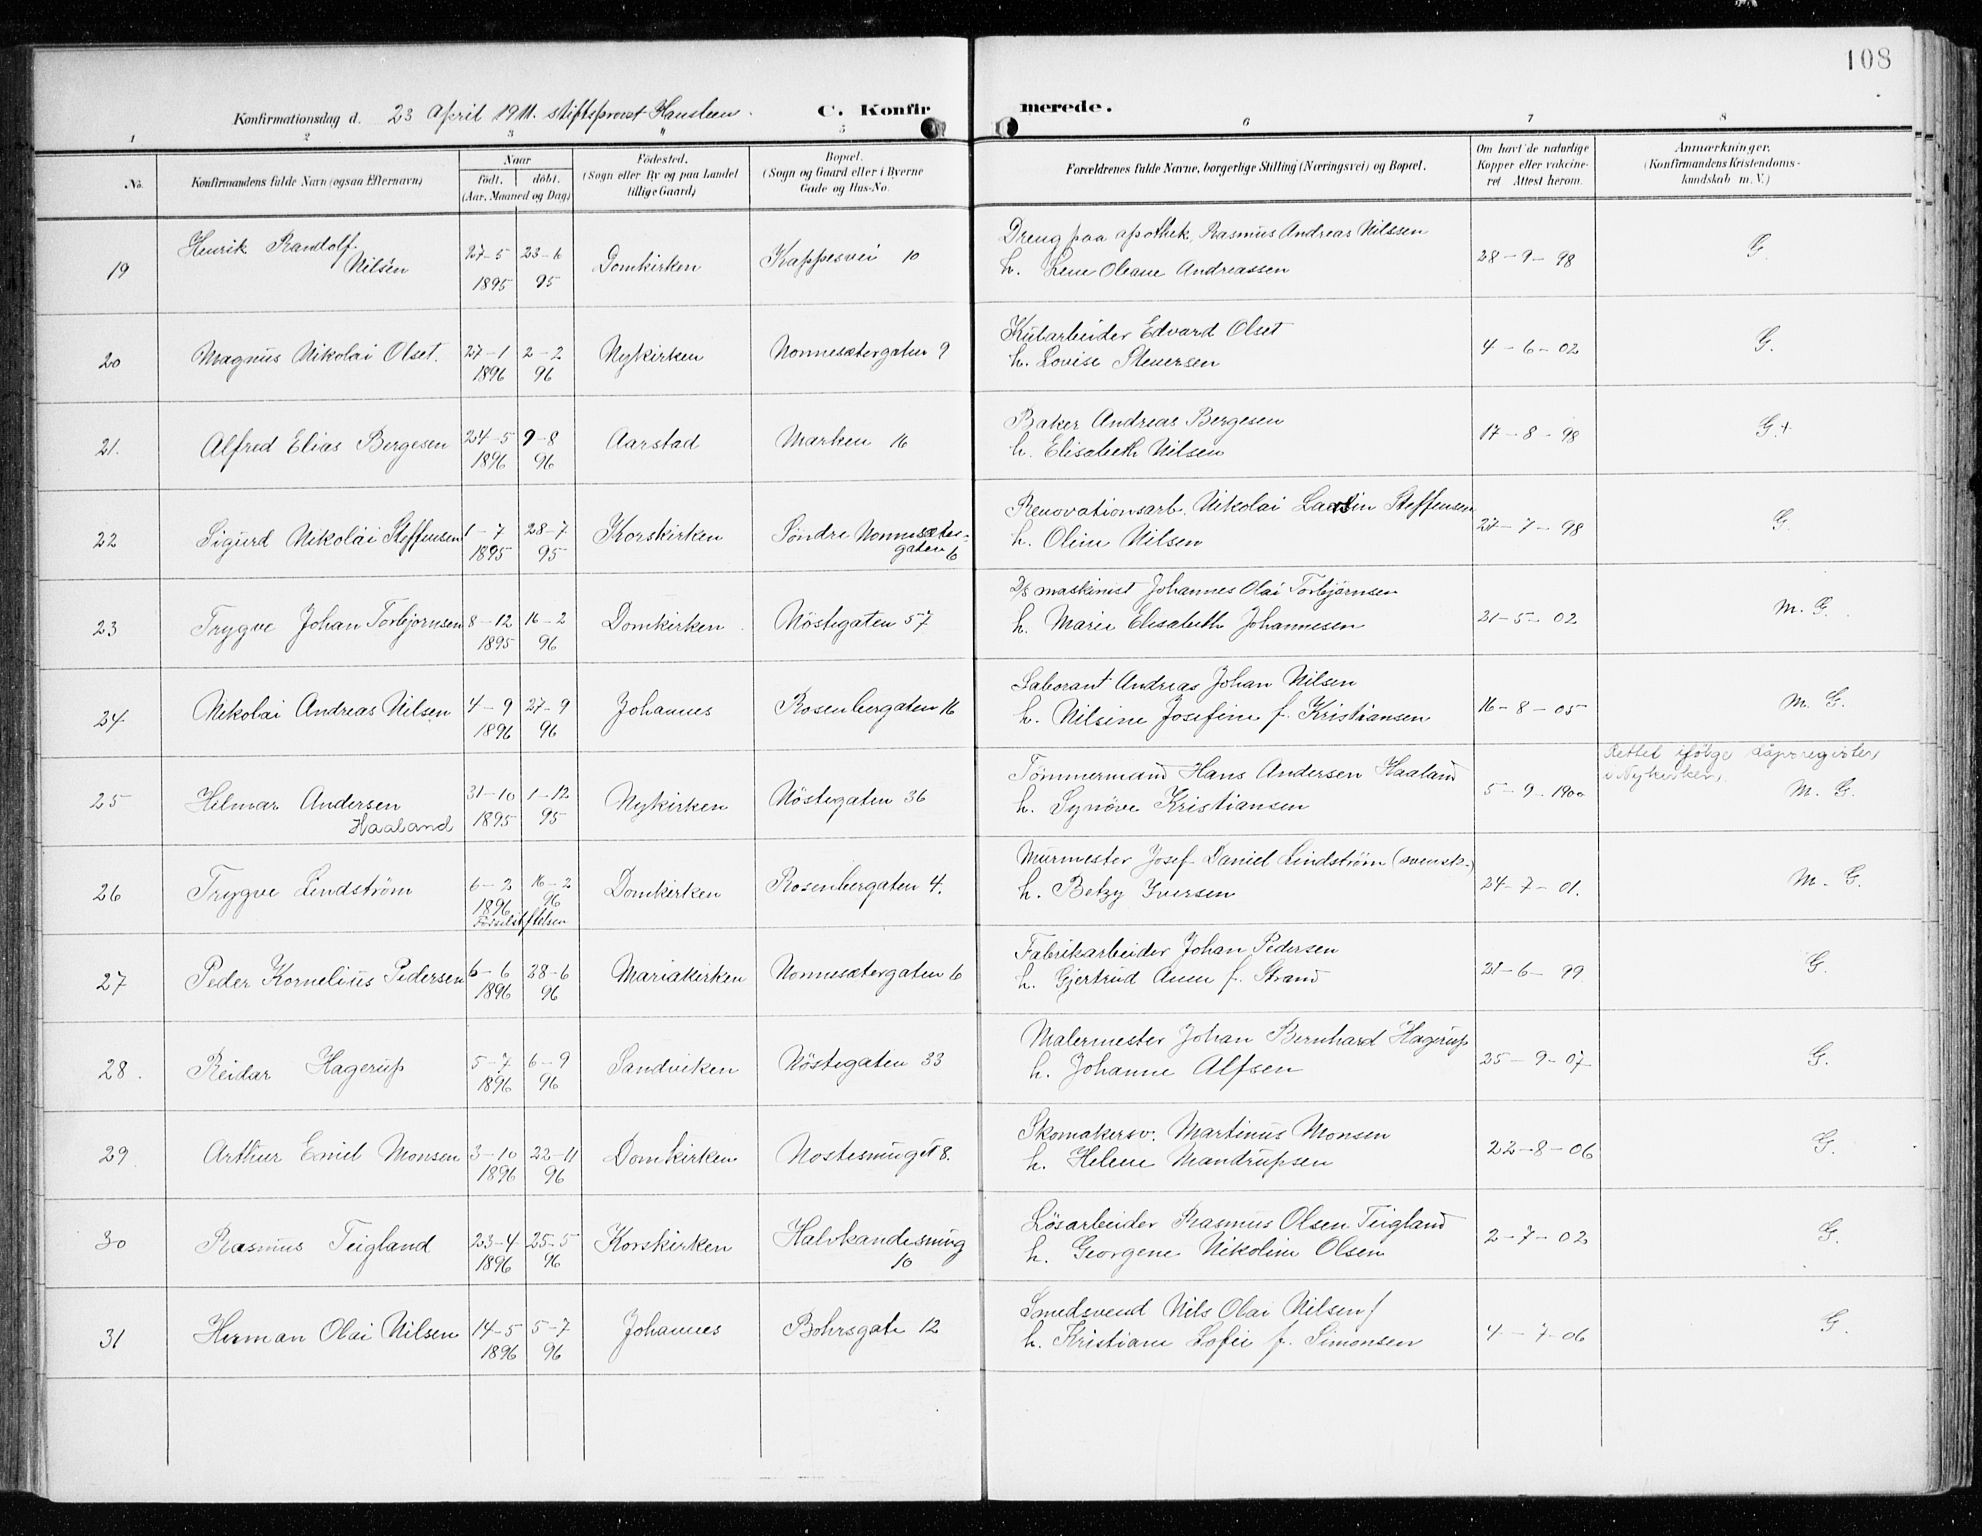 108
Konfirmationsdag d. 23 April 1911. stiftsprovst Hansteen.
C. Konfirmerede.
1 2 3 4 5 6 7 8
No. Konfirmandens fulde Navn (ogsaa Efternavn) Naar født. døbt. (Aar, Maaned og Dag) Fødested. (Sogn eller By og paa Landet tillige Gaard) Bopæl. (Sogn og Gaard eller i Byerne Gade og Hus-No. Forældrenes fulde Navne, borgerlige Stilling (Næringsvei) og Bopæl. Om havt de naturlige Kopper eller vakcineret Attest herom. Anmærkninger. (Konfirmandens Kristendomskundskab m. V.)
19 Henrik Randolf Nilsen 27-5 1895 23-6 95 Domkirken Kappesvei 10 Dreng paa apothek, Rasmus Andreas Nilssen 28-9-98 G.
h. Lene Oleane Andreassen
20 Magnus Nikolai Olset. 27-1 1896 2-2 96 Nykirken Nonnesætergaten 9 Kularbeider Edvard Olset 4-6-02 G.
h. Lovise Stenersen
21. Alfred Elias Bergesen 24-5 1896 9-8 96 Aarstad Marken 16 Baker Andreas Bergesen 17-8-98 G.+
h. Elisabeth Nilsen
22 Sigurd Nikolai Steffensen 1-7 1895 28-7 95 Korskirken Søndre Nonnesætergaten 6 Renovationsarb. Nikolai Larsin Steffensen 27-7-98 G.
h. Oline Nilsen
23 Trygve Johan Torbjørnsen 8-12 1895 16-2 96 Domkirken Nöstegaten 57 D/s maskinist Johannes Olai Torbjørnsen 21-5-02 M. G.
h. Marie Elisabeth Johannesen
24 Nikolai Andreas Nilsen 4-9 1896 27-9 96 Johannes Rosenbergaten 16 Laborant Andreas Johan Nilsen 16-8-05 M. G.
h. Nilsine Josefine f. Kristiansen
25 Hilmar Andersen Haaland 31-10 1895 1-12 95 Nykirken Nöstegaten 36 Tömmermand Hans Andersen Haaland 5-9-1900 Rettet ifölge daapsregister i Nykirken, M. G.
h. Synöve Kristiansen
26 Trygve Lindström 6-2 1896 Fødselsstiftelsen 16-2 96 Domkirken Rosenbergaten 4. Murmester Josef Daniel Lindström (svensk.) 24-7-01. M. G.
h. Betzy Iversen
27 Peder Kornelius Pedersen 6-6 1896 28-6 96 Mariakirken Nonnesætergaten 6 Fabrikarbeider Johan Pedersen 21-6-99 G.
h. Gjertrud Anne f. Strand
28. Reidar Hagerup 5-7 1896 6-9 96 Sandviken Nöstegaten 33 Malermester Johan Bernhard Hagerup 25-9-07 G.
h. Johanne Alfsen
29 Arthur Emiel Monsen 3-10 1896 22-11 96 Domkirken Nöstesmuget 8. Skomakersv. Martinus Monsen 22-8-06 G.
h. Helene Mandrupsen
30 Rasmus Teigland 23-4 1896 25-5 96 Korskirken Halvkandesmug 10 Lösarbeider Rasmus Olsen Teigland 2-7-02 G.
h. Georgene Nikoline Olsen
31 Herman Olai Nilsen 14-5 1896 5-7 96 Johannes Bohrsgate 12 Smedsvend Nils Olai Nilsen 4-7-06 G.
h. Kristiane Sofie f. Simonsen